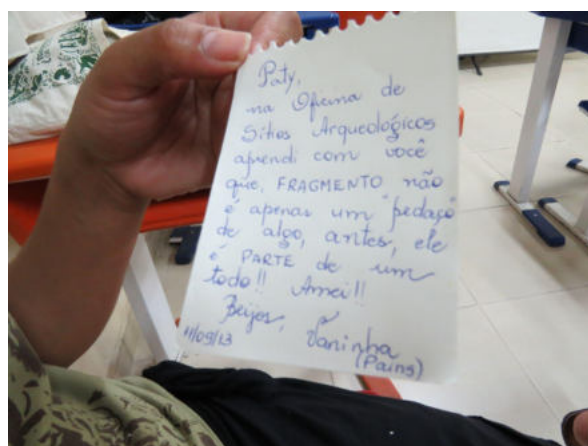 Paty,
na Oficina de
Sítios Arqueológicos
aprendi com você
que, FRAGMENTO não
é apenas um "pedaço"
de algo, antes, ele
é PARTE de um
todo!! Amei!!
Beijos, Vaninha
11/09/13 (Pains)